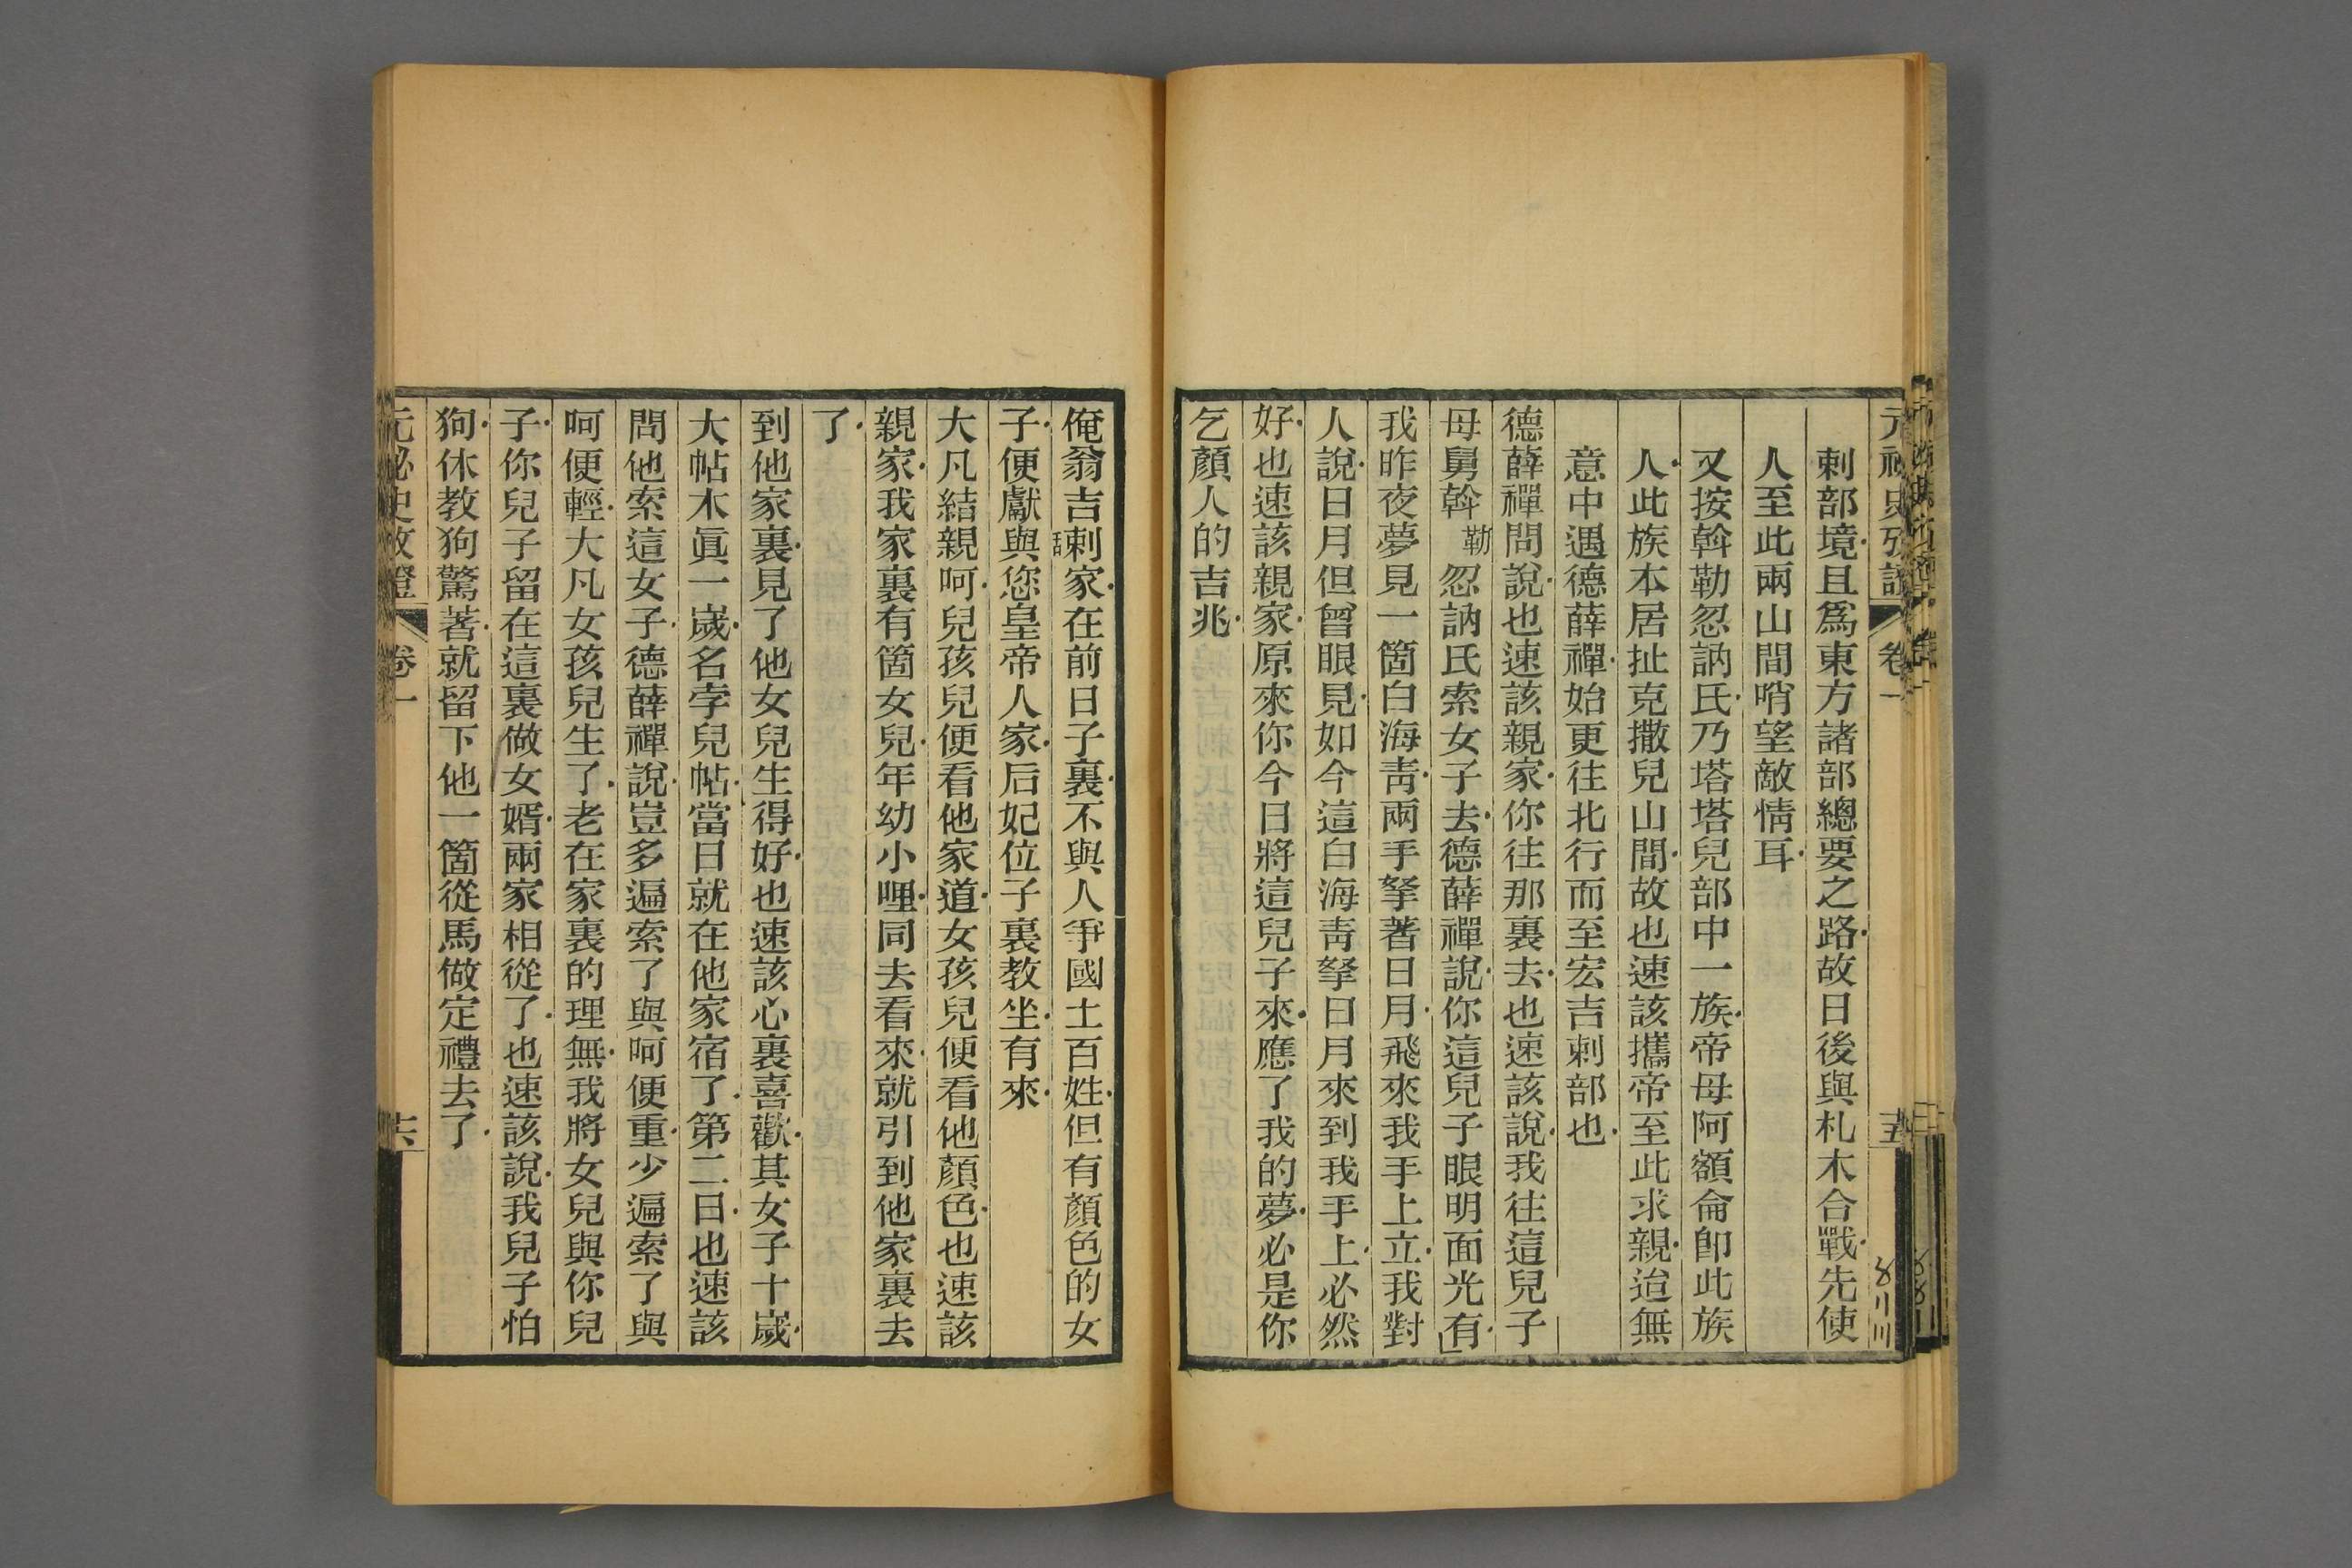 元祕史攷證 卷一 十五
剌部境且爲東方諸部總要之路故日後與札木合戰先使
人至此兩山間哨望敵情耳
又按斡勒忽訥氏乃塔塔兒部中一族帝母阿額侖卽此族
人此族本居扯克撒兒山間故也速該攜帝至此求親迨無
意中遇德薛禪始更往北行而至宏吉剌部也
德薛禪問說也速該親家你往那裏去也速該說我往這兒子
母舅斡勒忽訥氏索女子去德薛禪說你這兒子眼明面光有
我昨夜夢見一箇白海靑兩手拏著日月飛來我手上立我對
人說日月但曾眼見如今這白海靑拏日月來到我手上必然
好也速該親家原來你今日將這兒子來應了我的夢必是你
乞顏人的吉兆
俺翁吉剌家在前日子裏不與人爭國土百姓但有顏色的女
子便獻與您皇帝人家后妃位子裏教坐有來
大凡結親呵兒孩兒便看他家道女孩兒便看他顏色也速該
親家我家裏有箇女兒年幼小哩同去看來就引到他家裏去
了
到他家裏見了他女兒生得好也速該心裏喜歡其女子十歲
大帖木眞一歲名孛兒帖當日就在他家宿了第二日也速該
問他索這女子德薛禪說豈多遍索了與呵便重少遍索了與
呵便輕大凡女孩兒生了老在家裏的理無我將女兒與你兒
子你兒子留在這裏做女婿兩家相從了也速該說我兒子怕
狗休教狗驚著就留下他一箇從馬做定禮去了
元祕史攷證 卷一 十六